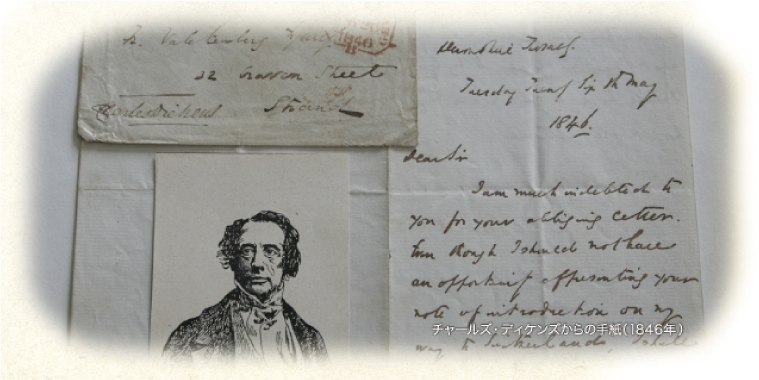 22 Craven Street
Charles Dickens Strand
Devonshire Terrace.
Tuesday Twenty Sixth May
1846.
Dear Sir
I am much indebted to
you for your obliging letter.
I should not have
an opportunity of presenting your
note of introduction on my
way to Switzerland, I shall
チャールズ・ディケンズからの手紙(1846年)